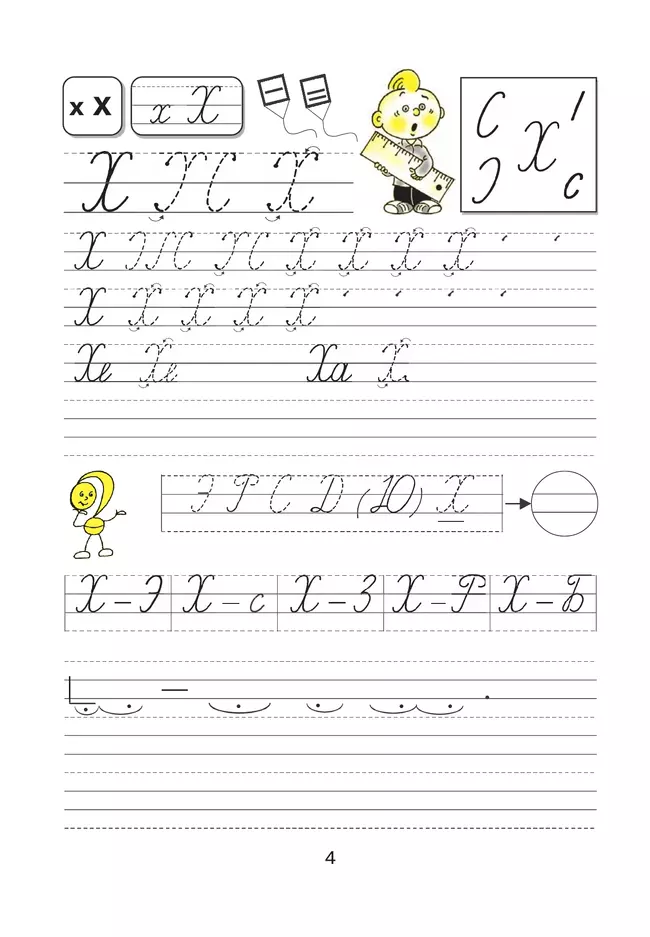 х Х х Х
Х Х Х
Х Х Х Х Х Х Х
Х Х Х Х Х
Хе Хе Ха Х
Э Р С D (Ю) Х
Х – Э Х – с Х – З Х – Р Х – Б
4